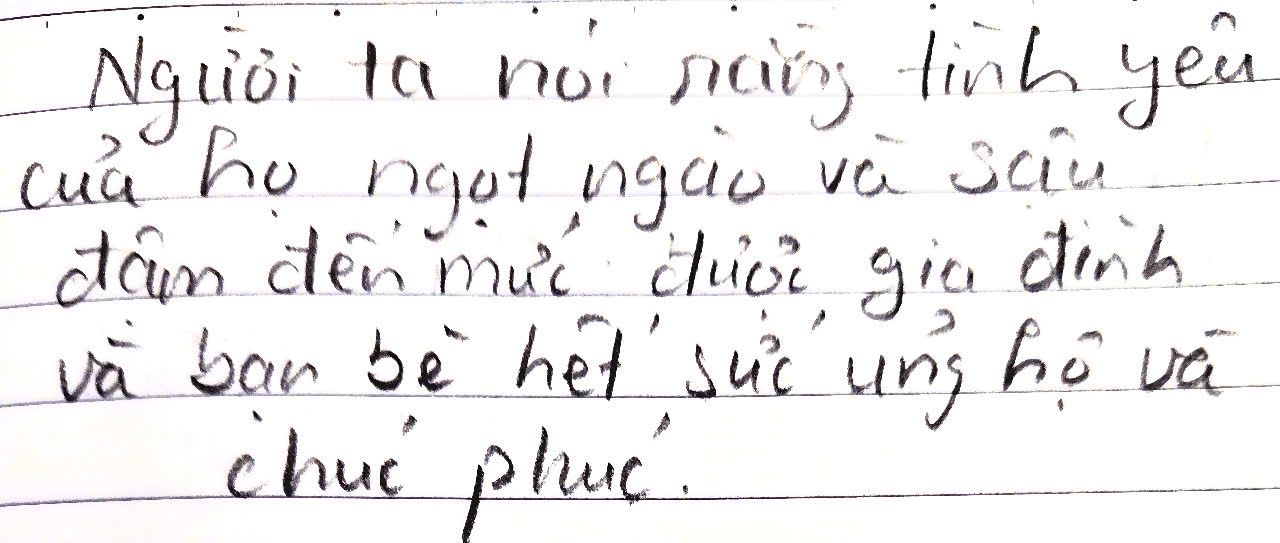 Người ta nói rằng tình yêu
của họ ngọt ngào và sâu
đậm đến mức được gia đình
và bạn bè hết sức ủng hộ và
chúc phúc.